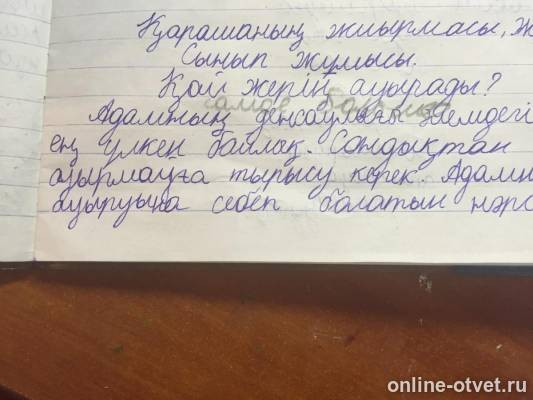 Қарашаның жиырмасы, ж
Сынып жұмысы.
Қай жерің ауырады?
Адамның денсаулығы әлемдегі
ең үлкен байлық. Сондықтан
ауырмауға тырысу керек. Адамн
ауыруына себеп болатын нәрс
online-otvet.ru